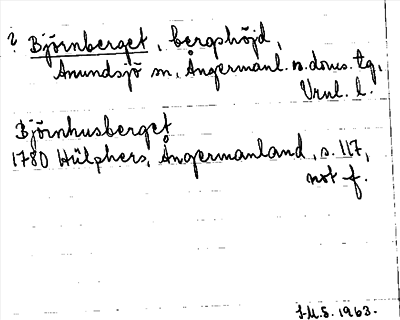 ? Björnberget, bergshöjd,
Anundsjö sn, Ångermanl. n. doms. tg,
Vrnl. l.
Björnhusberget
1780 Hülphers, Ångermanland, s. 117,
not f.
J.M.S. 1963.